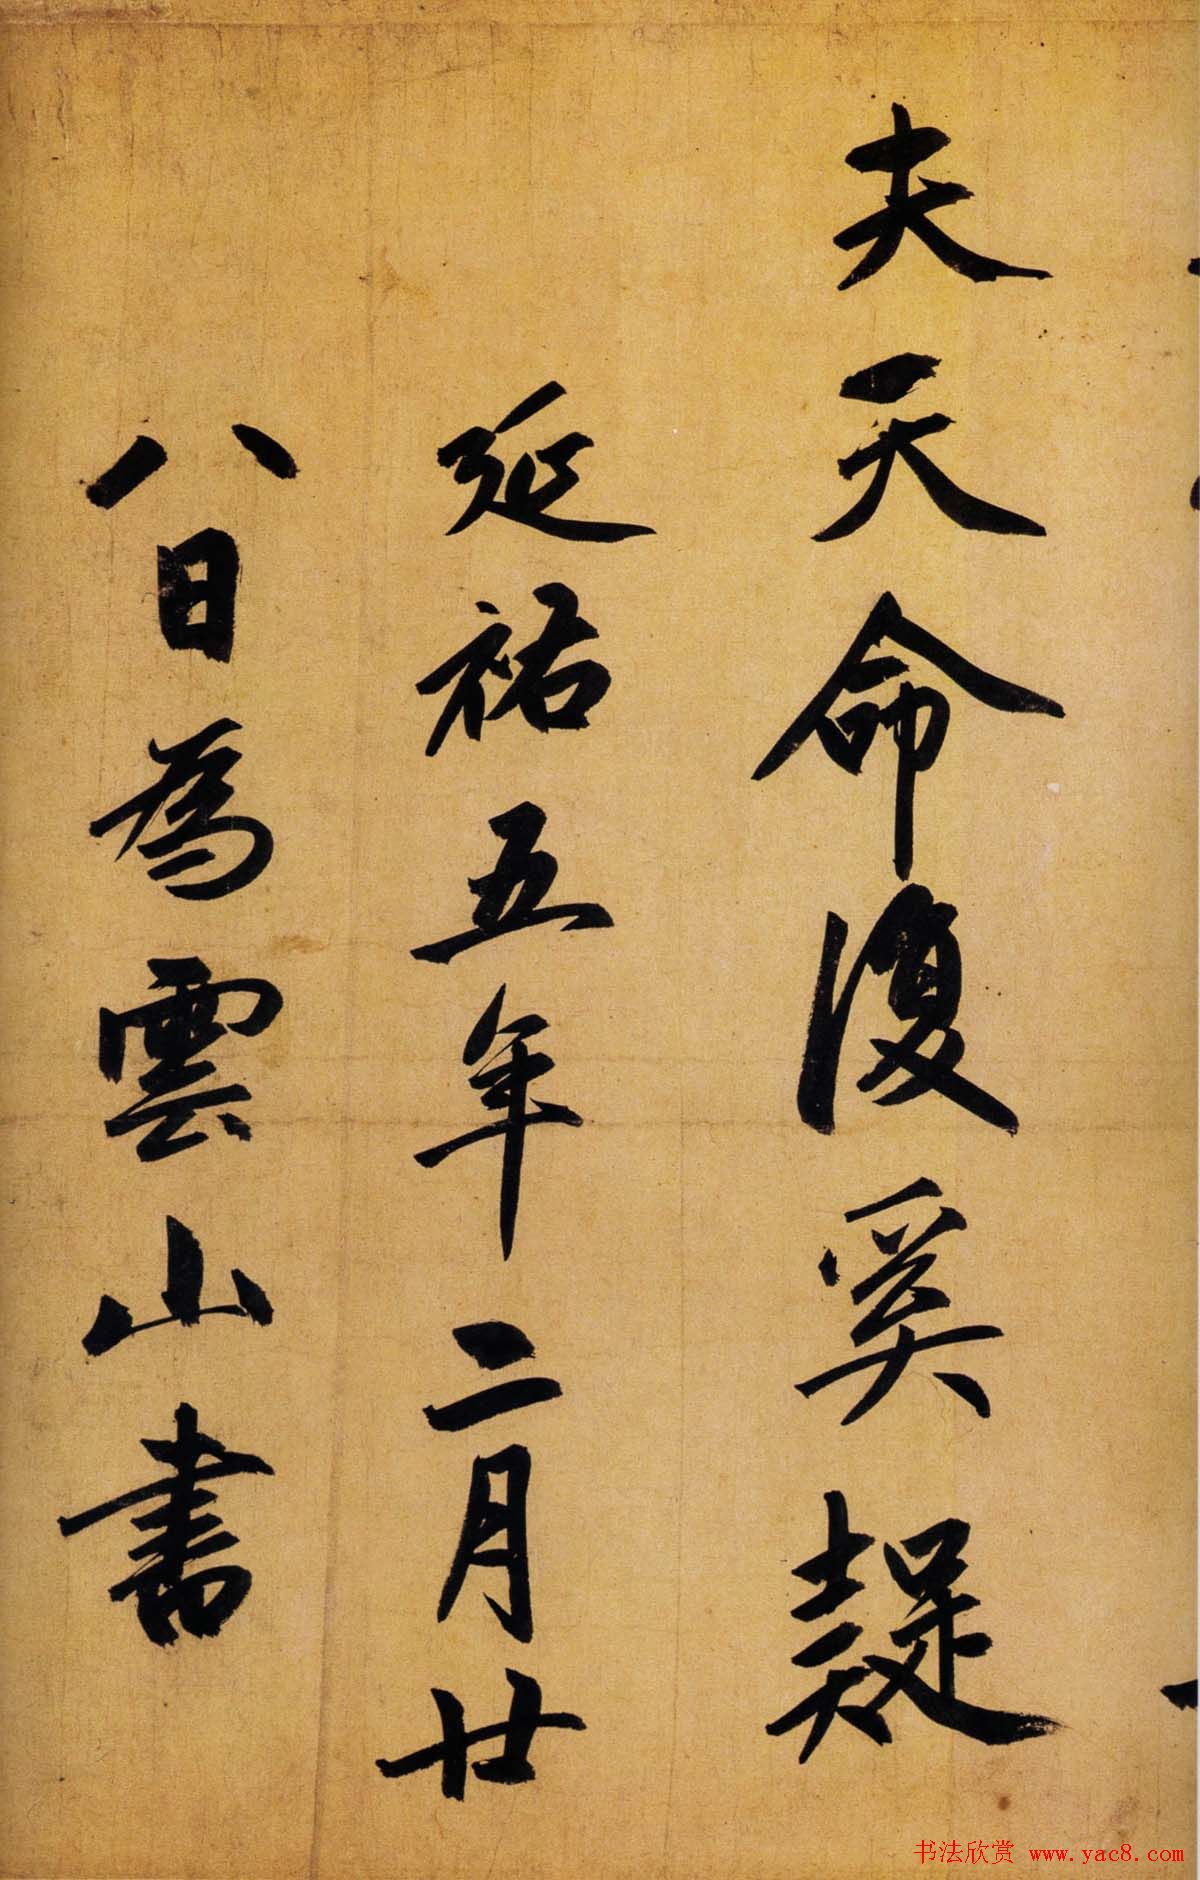 夫天命復奚疑
延祐五年二月廿
八日為雲山書
书法欣赏 www.yac8.com